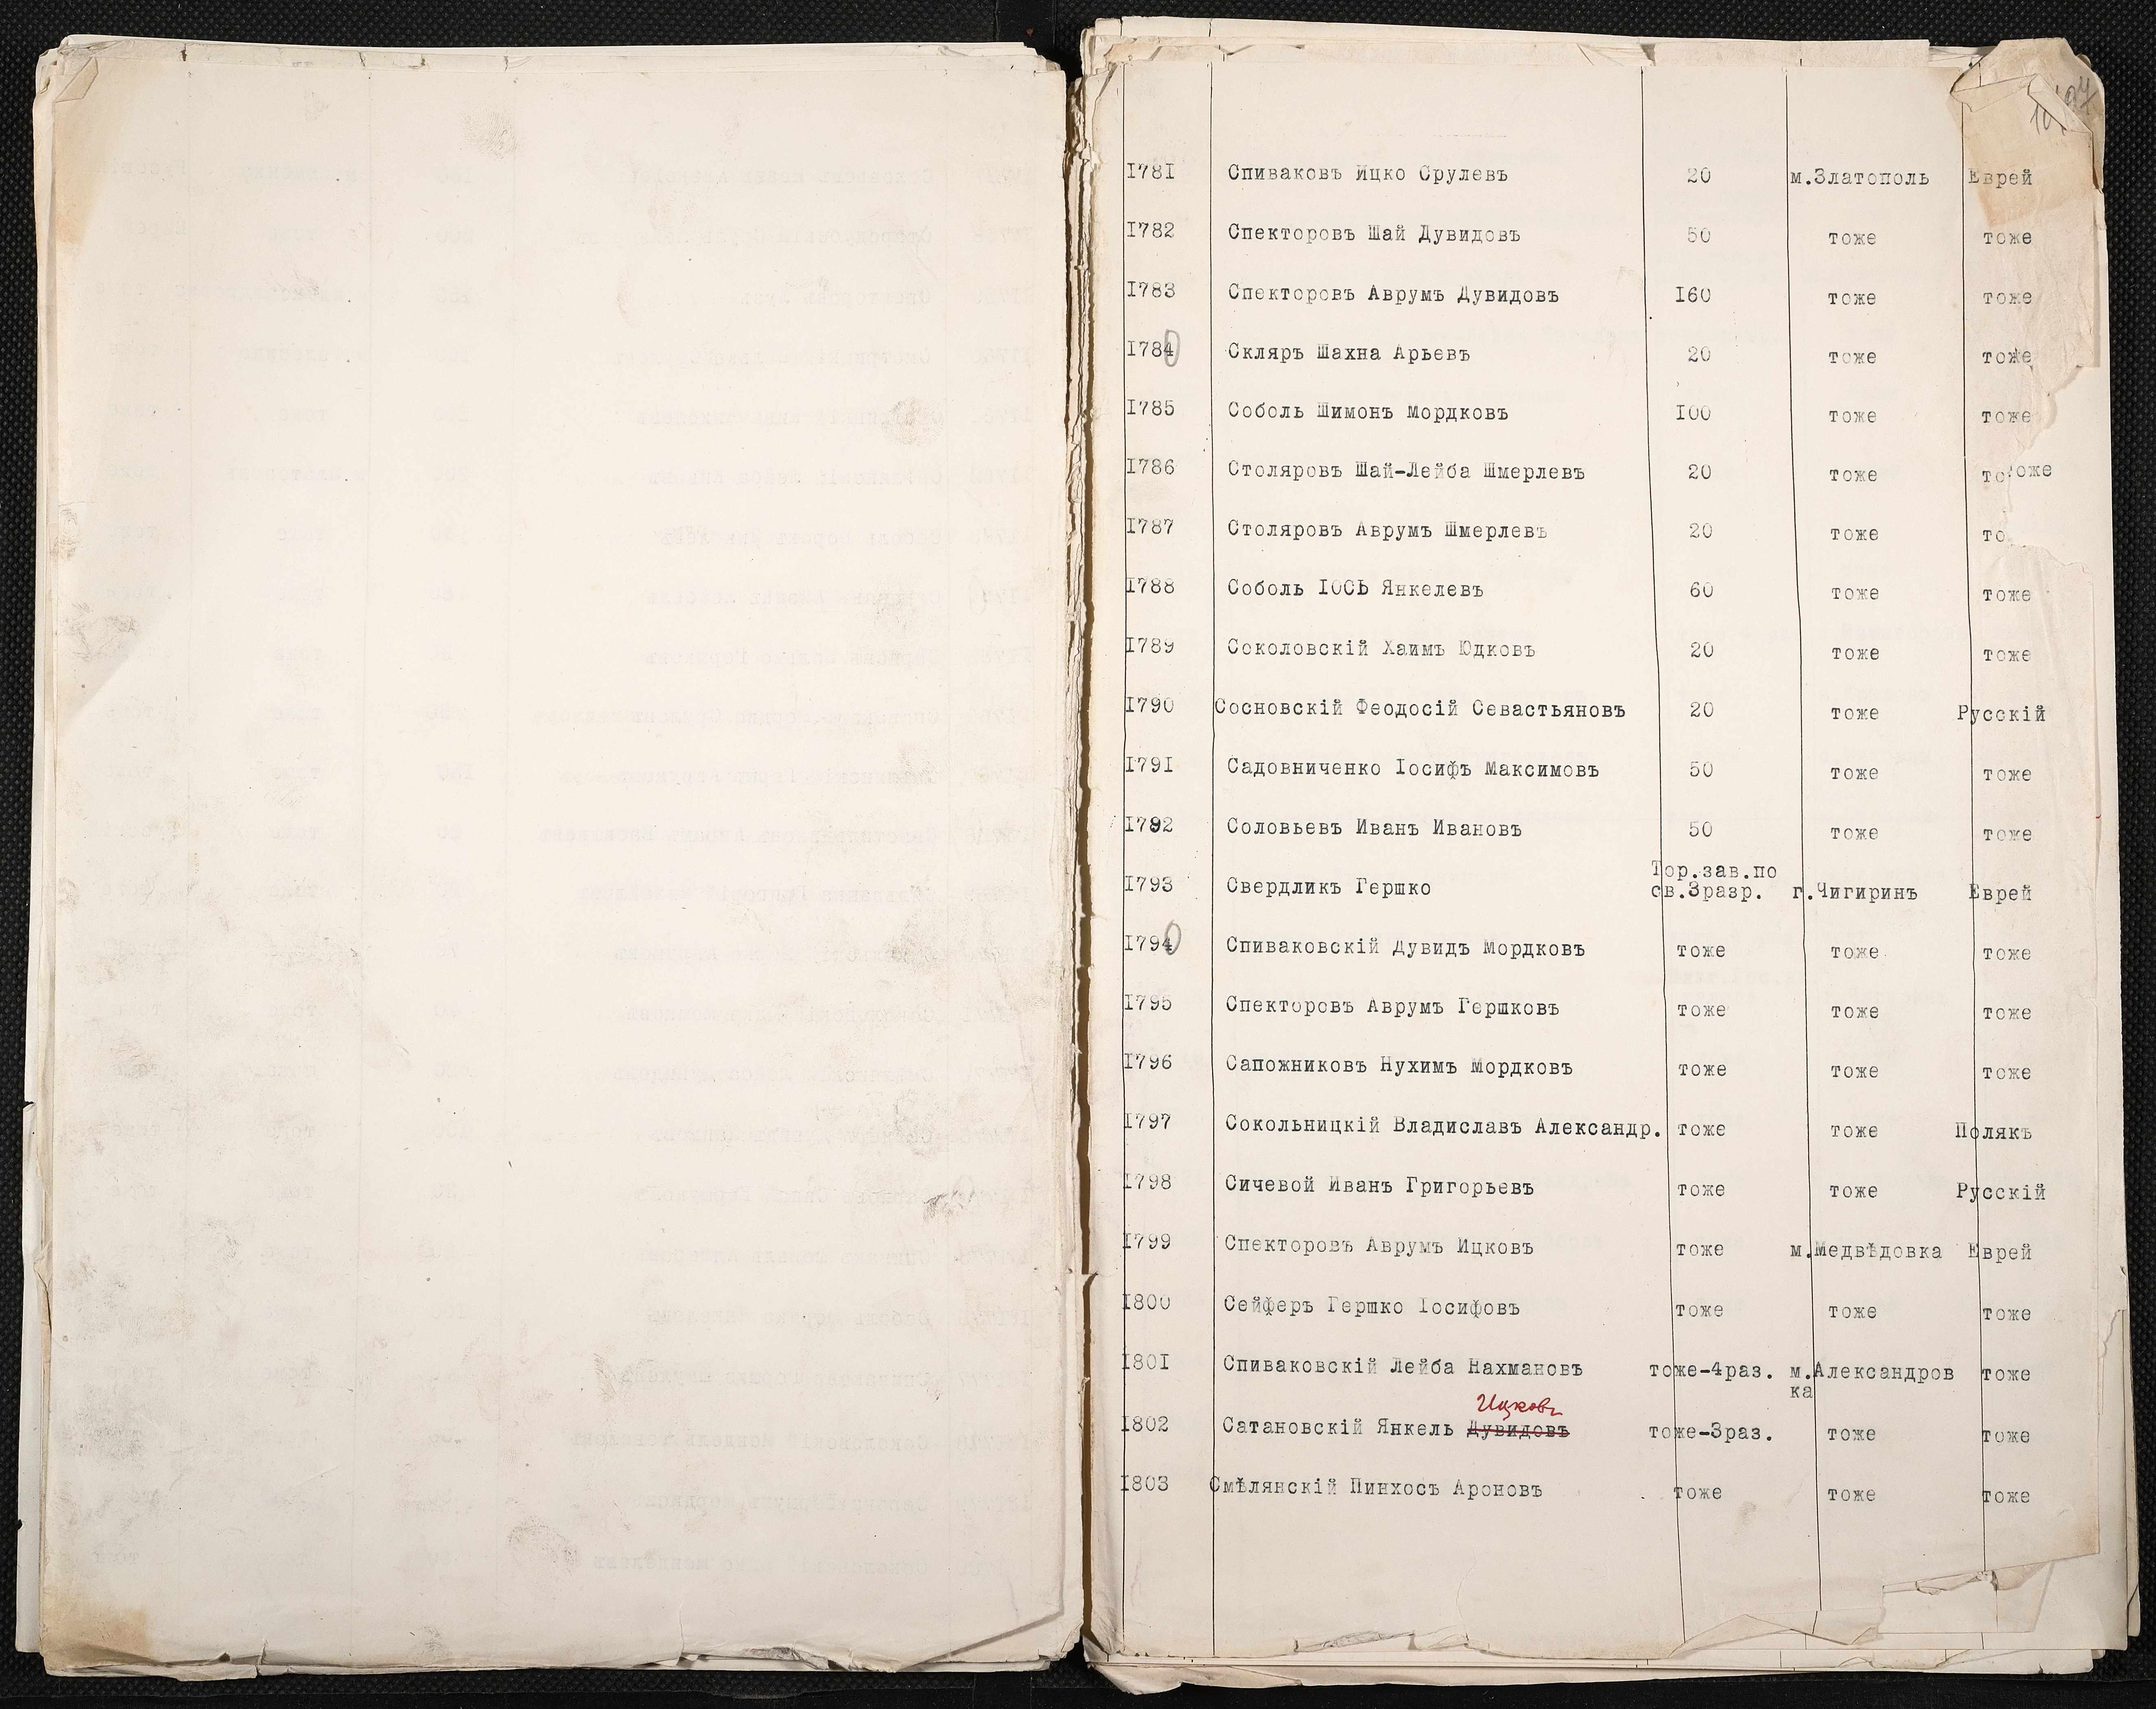 1781 Спиваковъ Ицко Срулевъ 20 м.Златополь Еврей
1782 Спекторовъ Шай Дувидовъ 50 тоже тоже
1783 Спекторовъ Аврумъ Дувидовъ 160 тоже тоже
1784 Скляръ Шахна Арьевъ 20 тоже тоже
1785 Соболь Шимонъ Мордковъ 100 тоже тоже
1786 Столяровъ Шай-Лейба Шмерлевъ 20 тоже то оже
1787 Столяровъ Аврумъ Шмерлевъ 20 тоже то
1788 Соболь ІОСЬ Янкелевъ 60 тоже тоже
1789 Соколовскій Хаимъ Юдковъ 20 тоже тоже
1790 Сосновскій Феодосій Севастьяновъ 20 тоже Русскій
1791 Садовниченко Іосифъ Максимовъ 50 тоже тоже
1792 Соловьевъ Иванъ Ивановъ 50 тоже тоже
Тор.зав.по
1793 Свердликъ Гершко св.3разр. г.Чигиринъ Еврей
1794 Спиваковскій Дувидъ Мордковъ тоже тоже тоже
1795 Спекторовъ Аврумъ Гершковъ тоже тоже тоже
1796 Сапожниковъ Нухимъ Мордковъ тоже тоже тоже
1797 Сокольницкій Владиславъ Александр. тоже тоже Полякъ
1798 Сичевой Иванъ Григорьевъ тоже тоже Русскій
1799 Спекторовъ Аврумъ Ицковъ тоже м.Медвѣдовка Еврей
1800 Сейферъ Гершко Іосифовъ тоже тоже тоже
1801 Спиваковскій Лейба Нахмановъ тоже-4раз. м.Александров тоже
ка
Ицковъ
1802 Сатановскій Янкель Дувидовъ тоже-3раз. тоже тоже
1803 Смѣлянскій Пинхосъ Ароновъ тоже тоже тоже